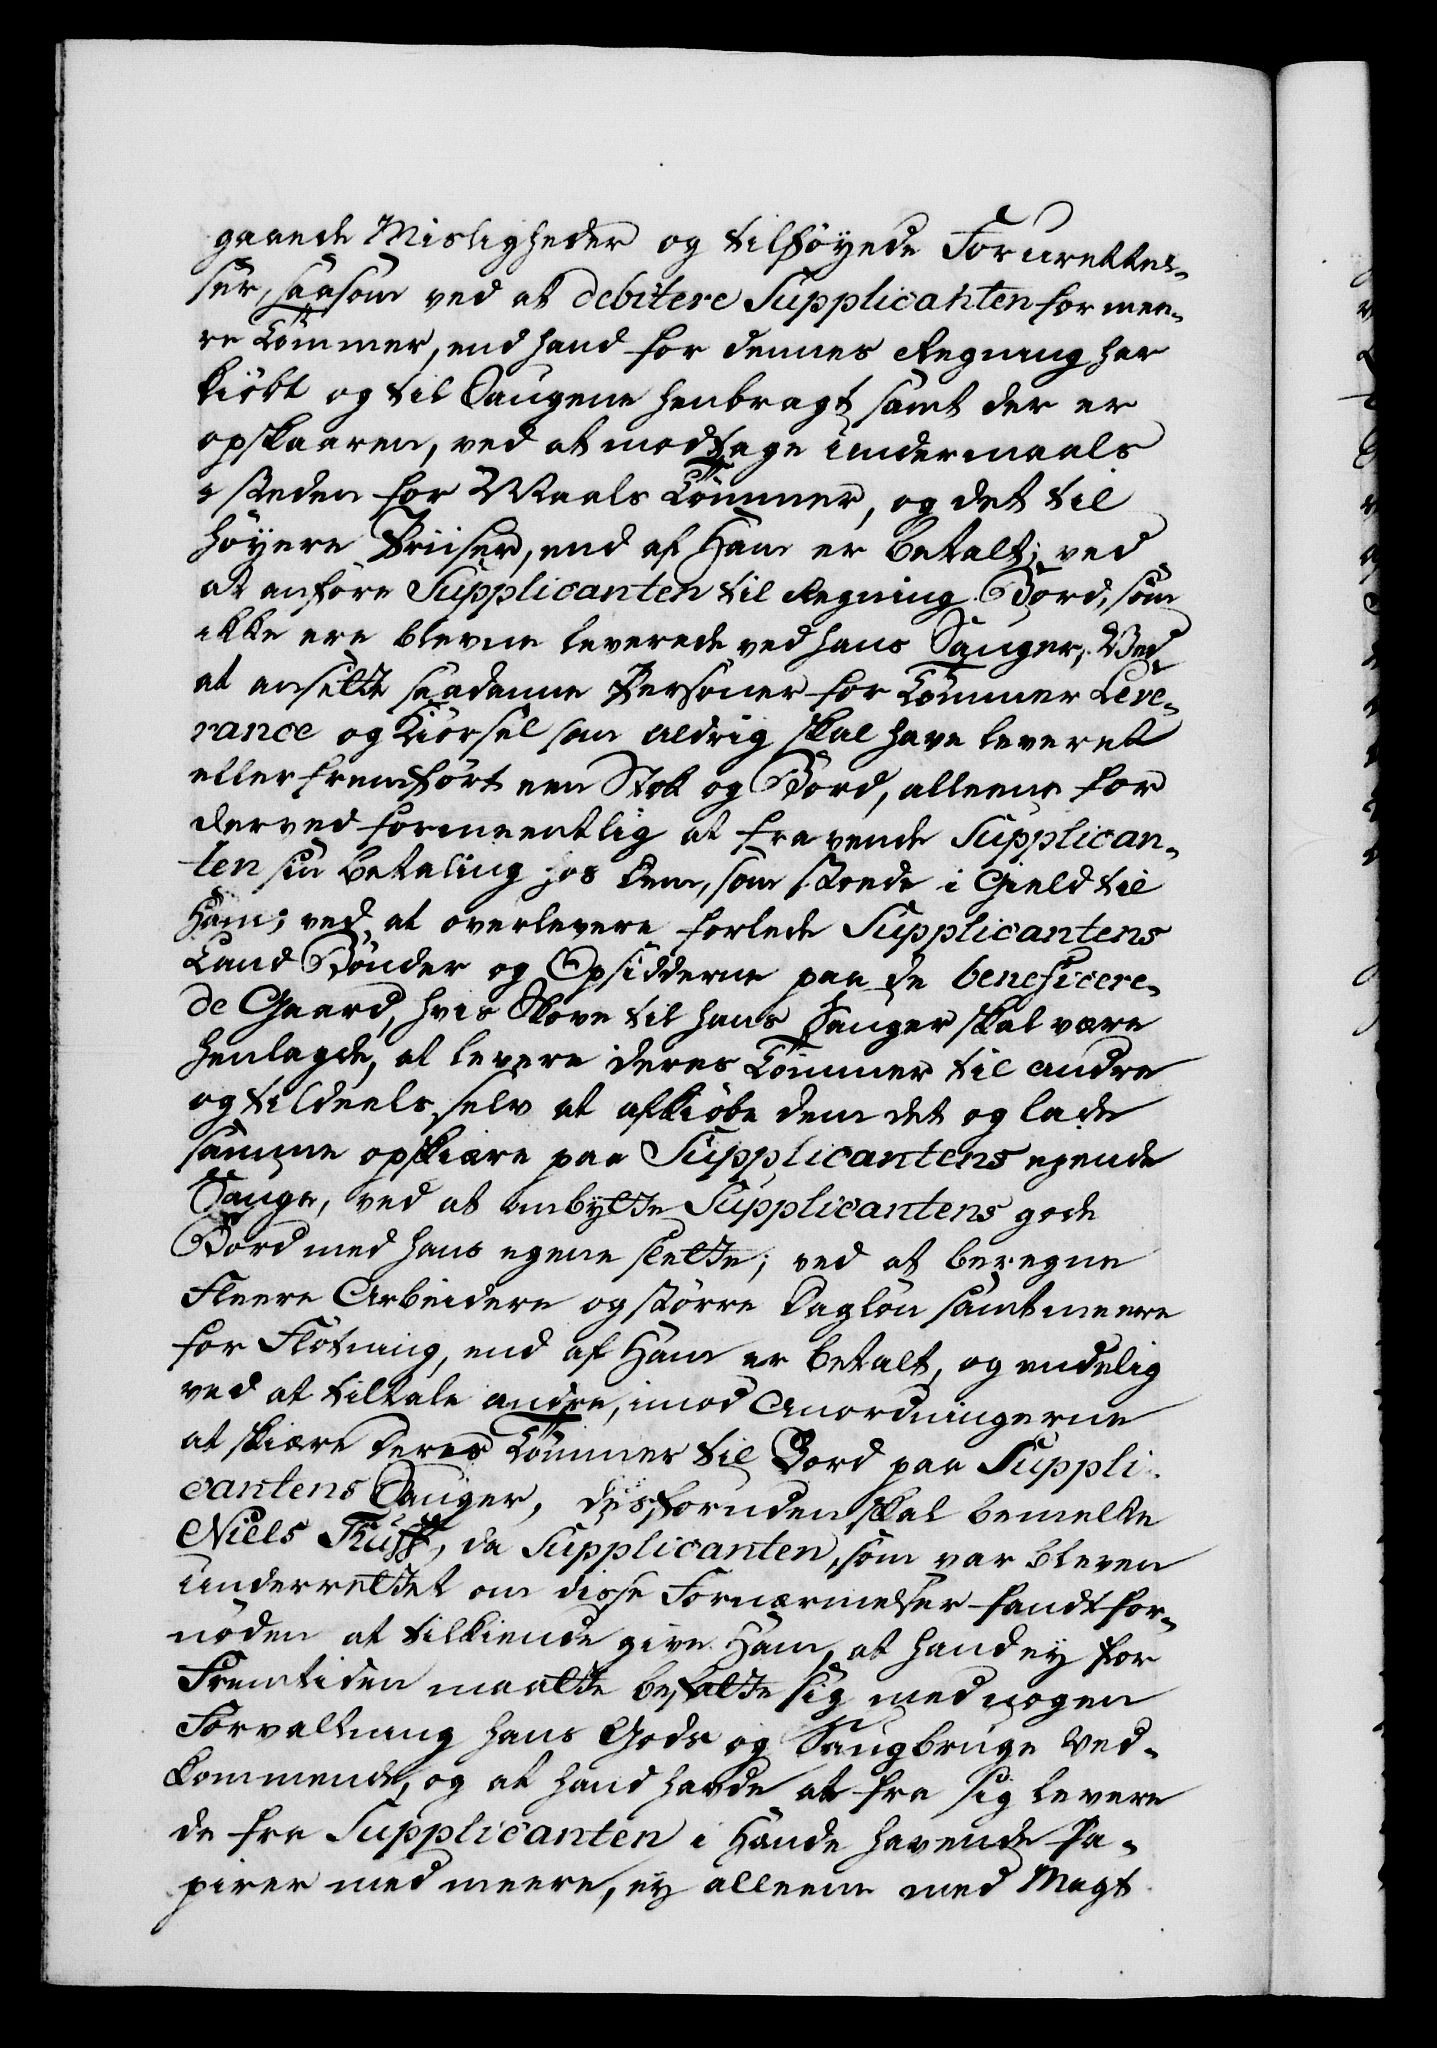 gaaende Misligheder og tilföyede Forurettel-
ser, saasom ved at debitere Supplicanten for mee-
re Tömmer, end hand for dennes Regning har
kiöbt og til Saugene henbragt samt der er
opskaaren, ved at modtage undermaals
i steden for Maals Tömmer, og det til
höyere Priiser, end af Ham er betalt; ved
at anföre Supplicanten til Regning Bord, som
ikke ere blevne leverede ved hans Sauger, Ved
at ansætte saadanne Personer for Tömmer Leve-
rance og Kiörsel som aldrig skal have leveret
eller fremfört een Stok og Bord, alleene for
derved formeentlig at fravende Supplican-
ten sin betaling hos dem, som stoede i Gield til
Ham; ved at overlevere forlede Supplicantens
Land Bönder og Opsidderne paa de beneficere-
de Gaard, hvis Skove til hans Sauger skal være
henlagde, at levere deres Tömmer til andre
og tildeels selv at afkiöbe dem det og lade
samme opskiære paa Supplicantens egende
Sauge, ved at ombytte Supplicantens gode
Bord med hans egene slette; ved at beregne
Fleere Arbeidere og större Daglön samt meere
for Flötning, end af Ham er betalt, og endelig
ved at tillade andre, imod Anordningerne
at skiære deres Tömmer til Bord paa Suppli-
cantens Sauger, desforuden skal bemelte
Niels, da Supplicanten, som var bleven
underrettet om disse Fornærmelser fandt for-
nöden at tilkiende give Ham, at hand ey for
Fremtiden maatte befatte sig med nogen
Forvaltning hans Gods og Saugbruge Ved-
kommende, og at hand havde at fra sig levere
de fra Supplicanten i Hænde havende Pa-
pirer med meere, ey alleene med Magt